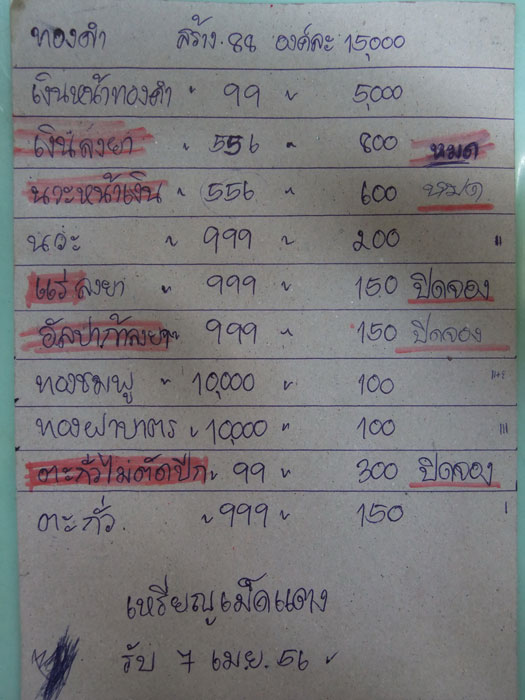 ทองคำ สร้าง. 88 องค์ละ 15,000
เงินหน้าทองคำ " 99 " 5,000
เงินลงยา " 556 " 800 หมด
นวะหน้าเงิน " 556 " 600 หมด
นวะ " 999 " 200 "
แร่ลงยา " 999 " 150 ปิดจอง
อัลปาก้าลงยา " 999 " 150 ปิดจอง
ทองชมพู " 10,000 " 100
ทองฝาบาตร " 10,000 " 100  III
ตะกั่วไม่ตัดปีก " 99 " 300 ปิดจอง
ตะกั่ว " 999 " 150 I
เหรียญเม็ดแตง
รับ 7 เม.ย. 56